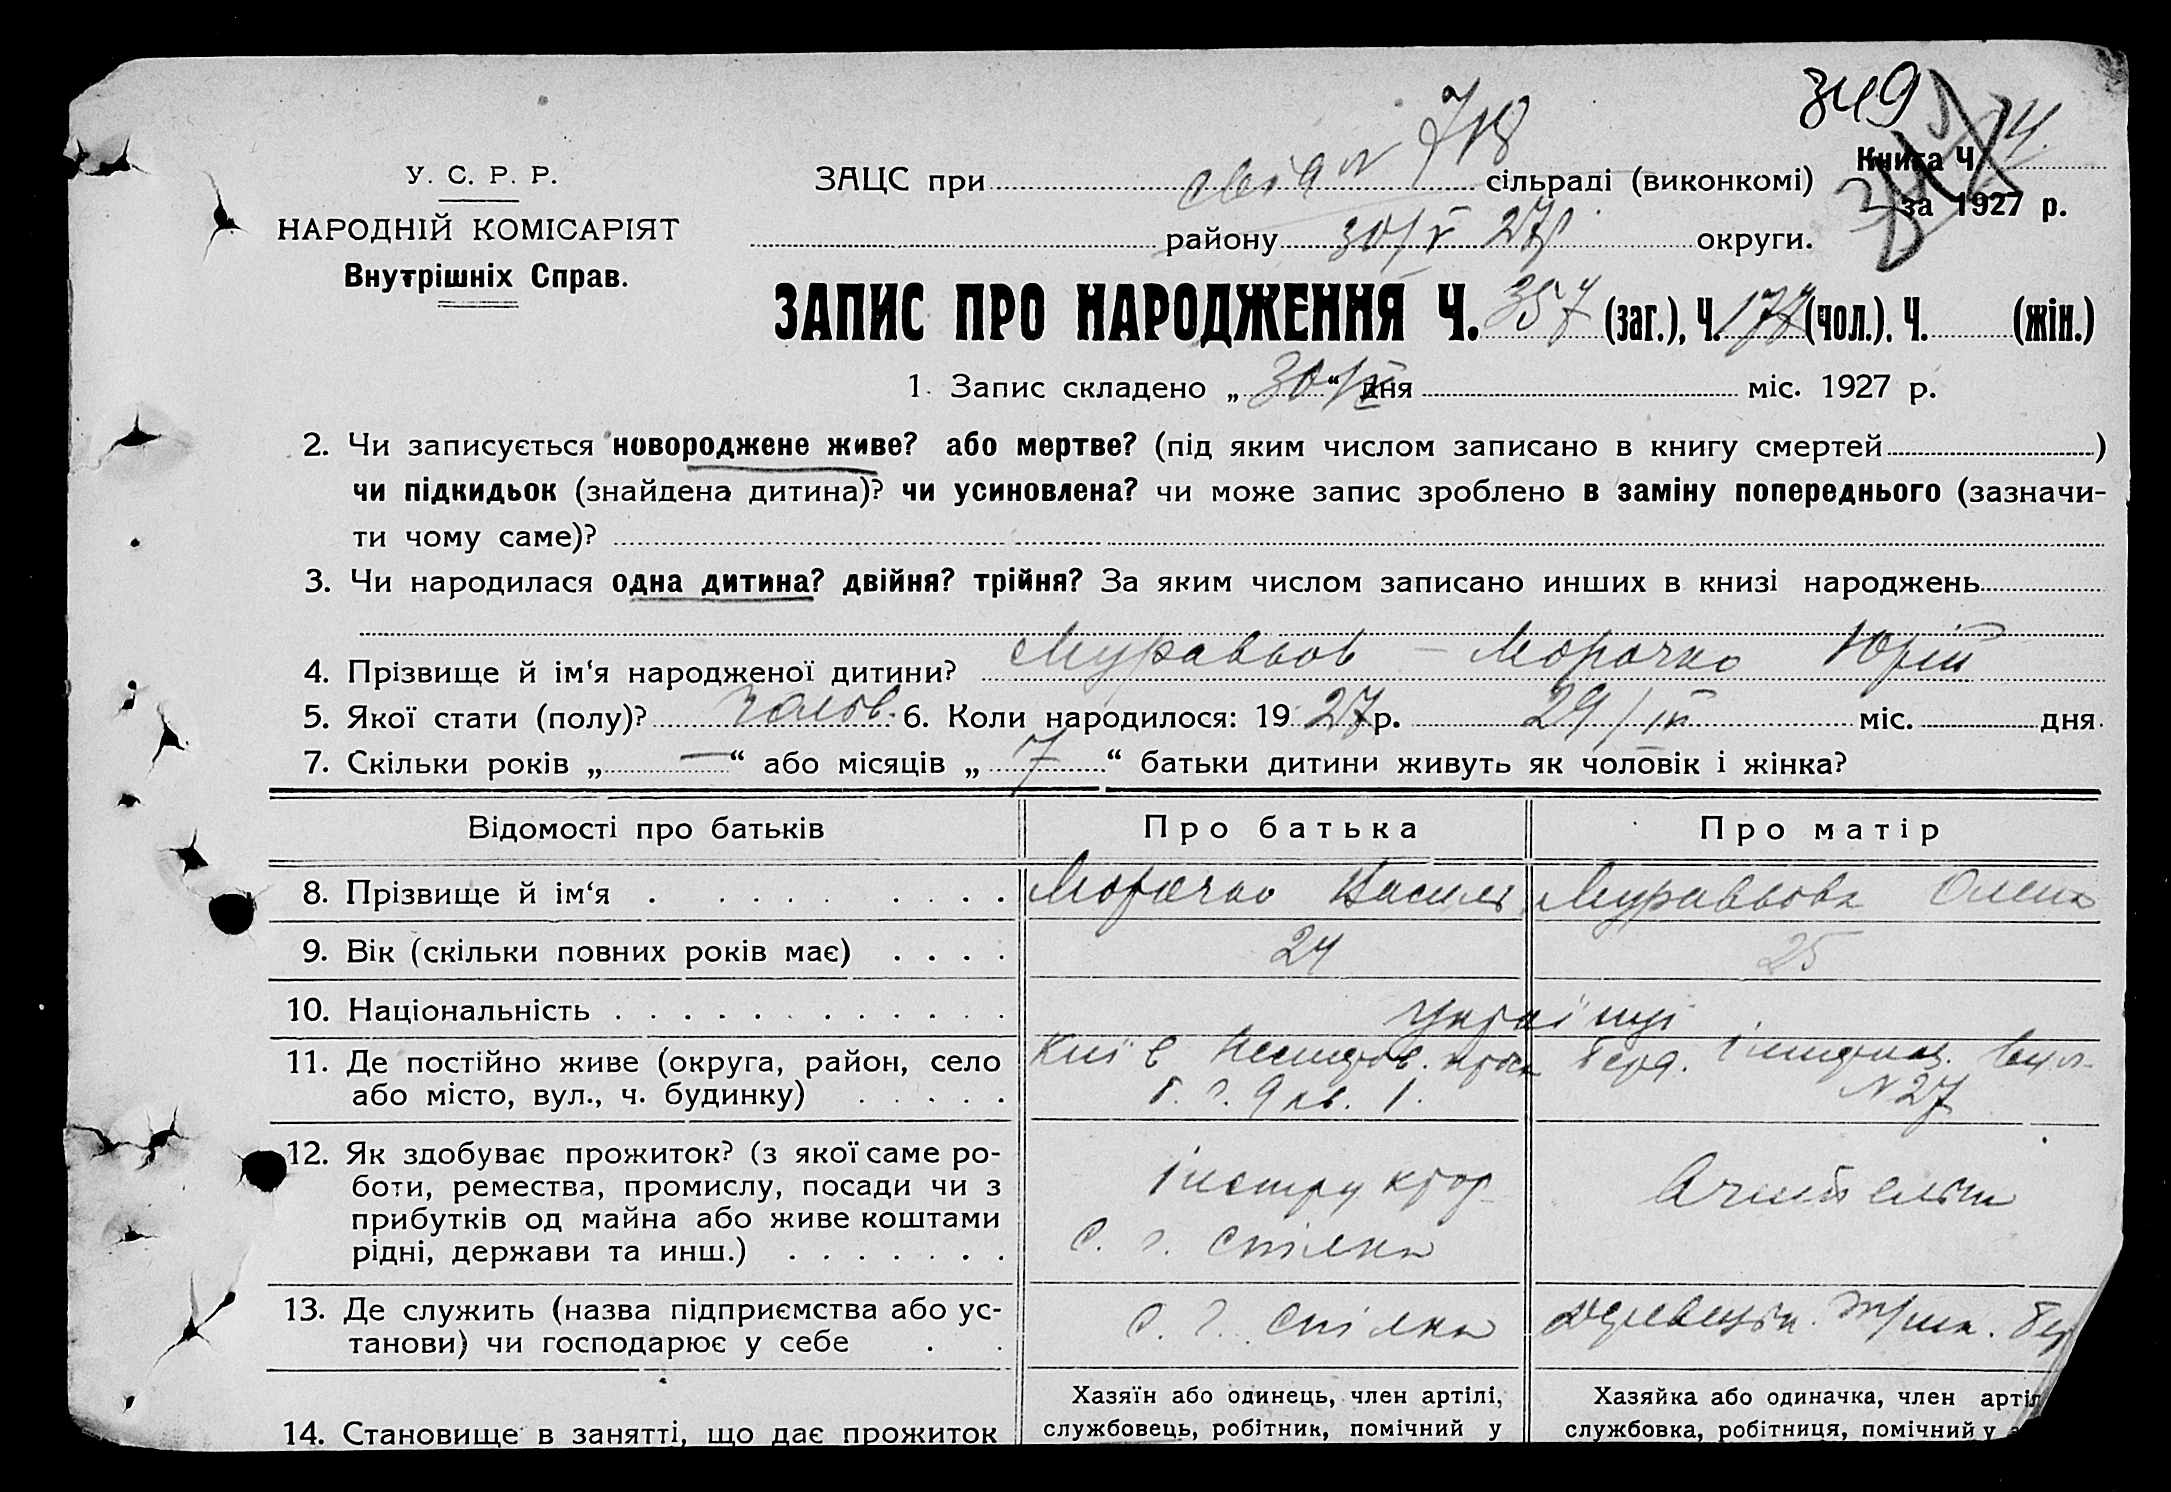 349
У. С. Р. Р.
НАРОДНІЙ КОМІСАРІЯТ
Внутрішніх Справ.
Книга Ч. 4.
за 1927 р.
718
ЗАЦС при сільраді (виконкомі)
району 30/V 27р. округи.
ЗАПИС ПРО НАРОДЖЕННЯ Ч. 357 (заг.), Ч. 177 (чол.). Ч. (жін.)
1. Запис складено „ 30/V “ дня міс. 1927 р.
2. Чи записується новороджене живе? або мертве? (під яким числом записано в книгу смертей )
чи підкидьок (знайдена дитина)? чи усиновлена? чи може запис зроблено в заміну попереднього (зазначи-
ти чому саме)?
3. Чи народилася одна дитина? двійня? трійня? За яким числом записано инших в книзі народжень
4. Прізвище й ім‘я народженої дитини? Муравьов - Морочко Юрій
5. Якої стати (полу)? чолов. 6. Коли народилося: 19 27 р. 29/ міс. дня
7. Скільки років „ — “ або місяців „ 7 “ батьки дитини живуть як чоловік і жінка?
Відомості про батьків Про батька Про матір
8. Прізвище й ім‘я Морочко Василь Муравьова Олена
9. Вік (скільки повних років має) 24 25
10. Національність Українці
11. Де постійно живе (округа, район, село Київ
або місто, вул., ч. будинку) 9 кв. 1. N 27
12. Як здобуває прожиток? (з якої саме ро-
боти, ремества, промислу, посади чи з Інструктор
прибутків од майна або живе коштами
рідні, держави та инш.) С. г. спілки
13. Де служить (назва підприємства або ус- С. г. спілка
танови) чи господарює у себе
Хазяїн або одинець, член артілі, Хазяйка або одиначка, член артіл
14. Становище в занятті, що дає прожиток службовець, робітник, помічний у службовка, робітниця, помічний у